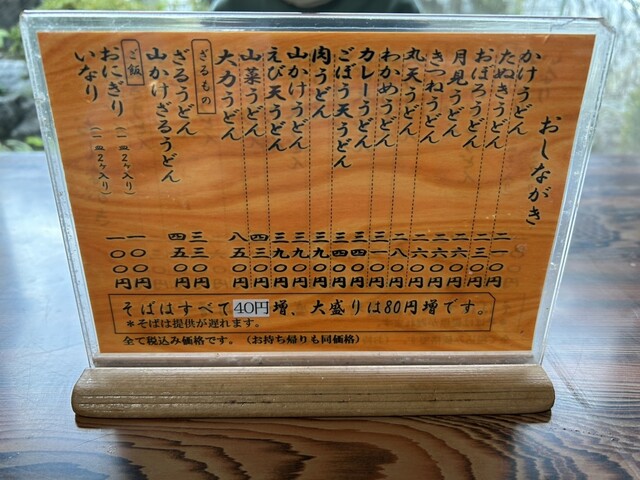 おしながき
かけうどん 二一〇円
たぬきうどん 二三〇円
おぼろうどん 二六〇円
月見うどん 二六〇円
きつねうどん 二六〇円
丸天うどん 二八〇円
わかめうどん 三〇〇円
カレーうどん 三四〇円
ごぼう天うどん 三四〇円
肉うどん 三九〇円
山かけうどん 三九〇円
えび天うどん 三九〇円
山菜うどん 四三〇円
大力うどん 八五〇円
ざるもの
ざるうどん 三三〇円
山かけざるうどん 四五〇円
ご飯
おにぎり(一皿2ヶ入り) 一〇〇円
いなり(一皿2ヶ入り) 一〇〇円
そばはすべて40円増、大盛りは80円増です。
*そばは提供が遅れます。
全て税込み価格です。(お持ち帰りも同価格)